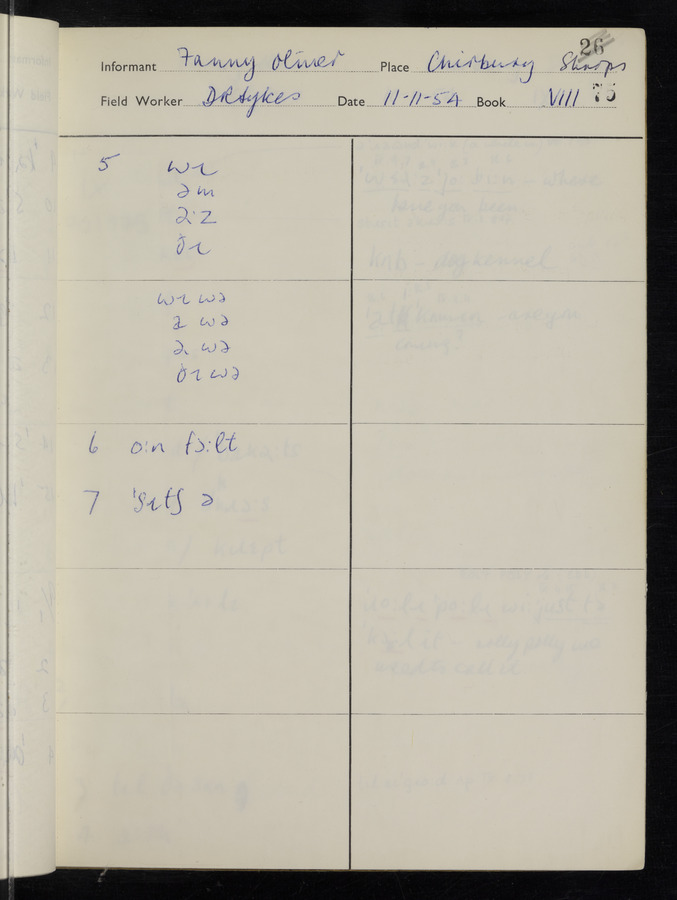 26
Informant Fanny Oliver Place Chirbury Shrops
Field Worker D R Sykes Date 11-11-54 Book VIII 75
5 wɪ
əm
ə:z
ðɪ
wɪ wə
ə wə
ə wə
ðɪ wə
6 o:n fɔ:lt
7 'sɪtʃ ə